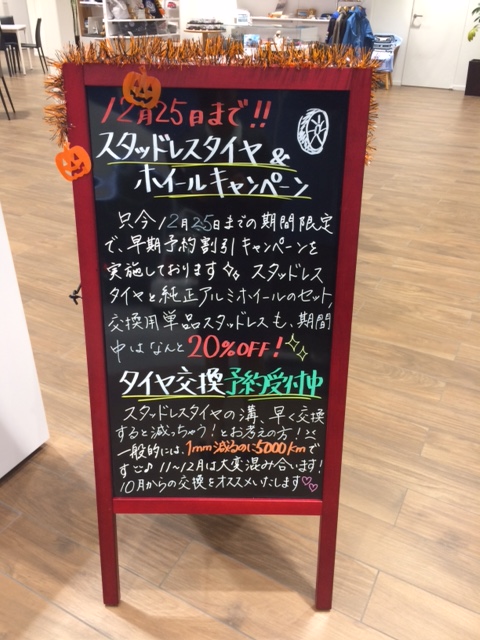 12月25日まで!!
スタッドレスタイヤ&
ホイールキャンペーン
只今12月25日までの期間限定
で、早期予約割引キャンペーンを
実施しております スタッドレス
タイヤと純正アルミホイールのセット,
交換用単品スタッドレスも、期間
中はなんと20%OFF!
タイヤ交換予約受付中
スタッドレスタイヤの溝、早く交換
すると減っちゃう!とお考えの方!
一般的には、1mm減るのに5000kmで
す♪11〜12月は大変混み合います!
10月からの交換をオススメいたします♡♡